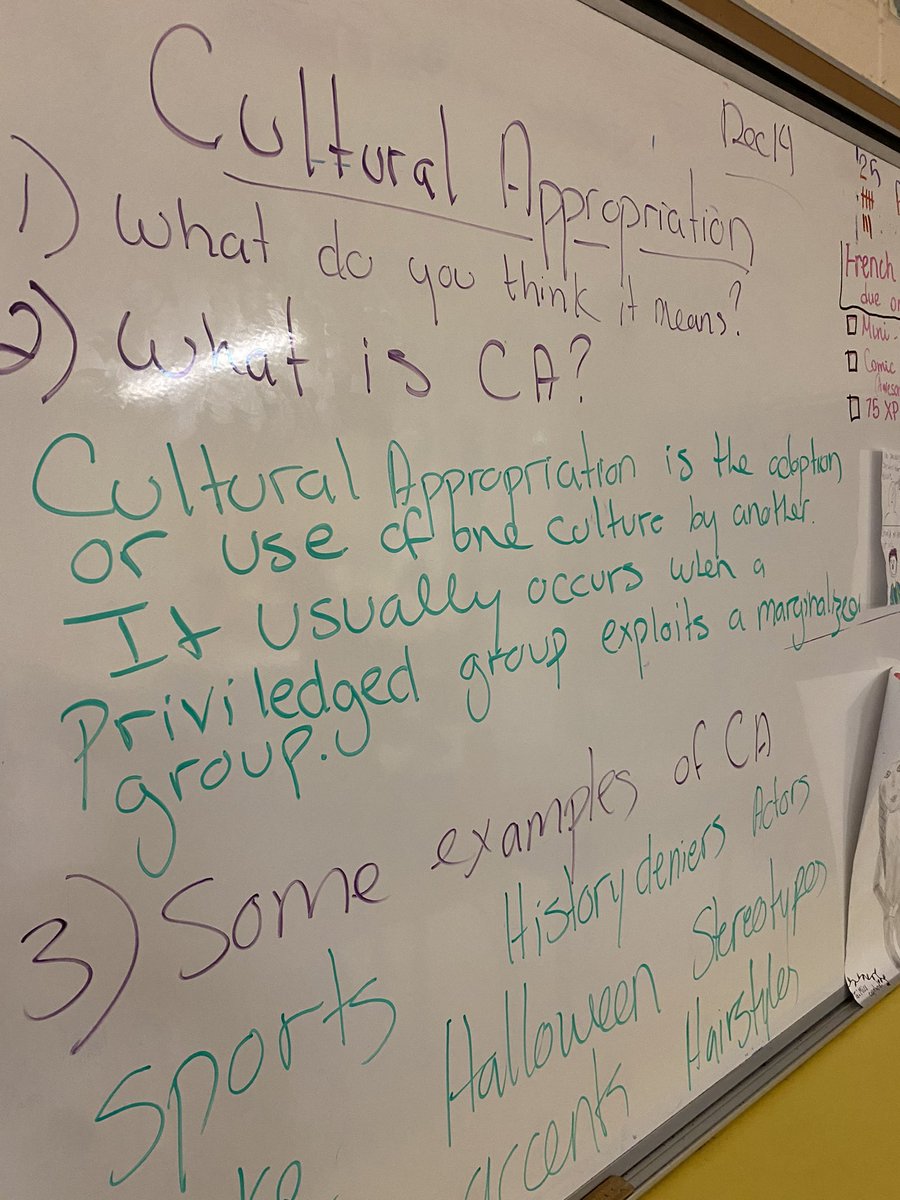 Dec 14
Cultural Appropriation
1) What do you think it means?
2) What is CA?
Cultural Appropriation is the adoption
or use of one culture by another.
It usually occurs when a
Priviledged group exploits a marginalized
group.
3) Some examples of CA
History deniers Actors
Sports Halloween Stereotypes
accents Hairstyles
25
French
due
Mini-
Comic
75 XP